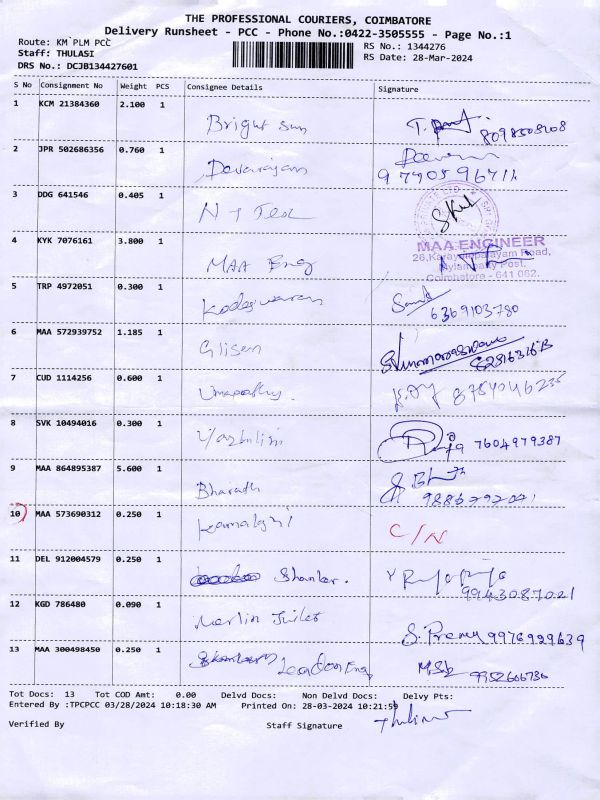 THE PROFESSIONAL COURIERS, COIMBATORE
Delivery Runsheet - PCC - Phone No.:0422-3505555 - Page No.:1
Route: KM PLM PCC
RS No.: 1344276
Staff: THULASI
RS Date: 28-Mar-2024
DRS No.: DCJB134427601
S No Consignment No Weight PCS Consignee Details Signature
1 KCM 21384360 2.100 1 Bright Sun 8098508208
2 JPR 502686356 0.760 1 Devarajan
3 DDG 641546 0.405 1
4 KYK 7076161 3.800 1 MAA Eng
MAA ENGINEER
Coimbatore - 641 062.
5 TRP 4972051 0.300 1 6369103780
6 MAA 572939752 1.185 1
7 CUD 1114256 0.600 1 Umapathy.
8 SVK 10494016 0.300 1 7604979387
9 MAA 864895387 5.600 1 Bharath
10 MAA 573690312 0.250 1 C/N
11 DEL 912004579 0.250 1 Shanker. 9943087021
12 KGD 786480 0.090 1 Merlin 9976929639
13 MAA 300498450 0.250 1 London Eng 9952606736
Tot Docs: 13 Tot COD Amt: 0.00 Delvd Docs: Non Delvd Docs: Delvy Pts:
Entered By :TPCPCC 03/28/2024 10:18:30 AM Printed On: 28-03-2024 10:21:59
Verified By Staff Signature